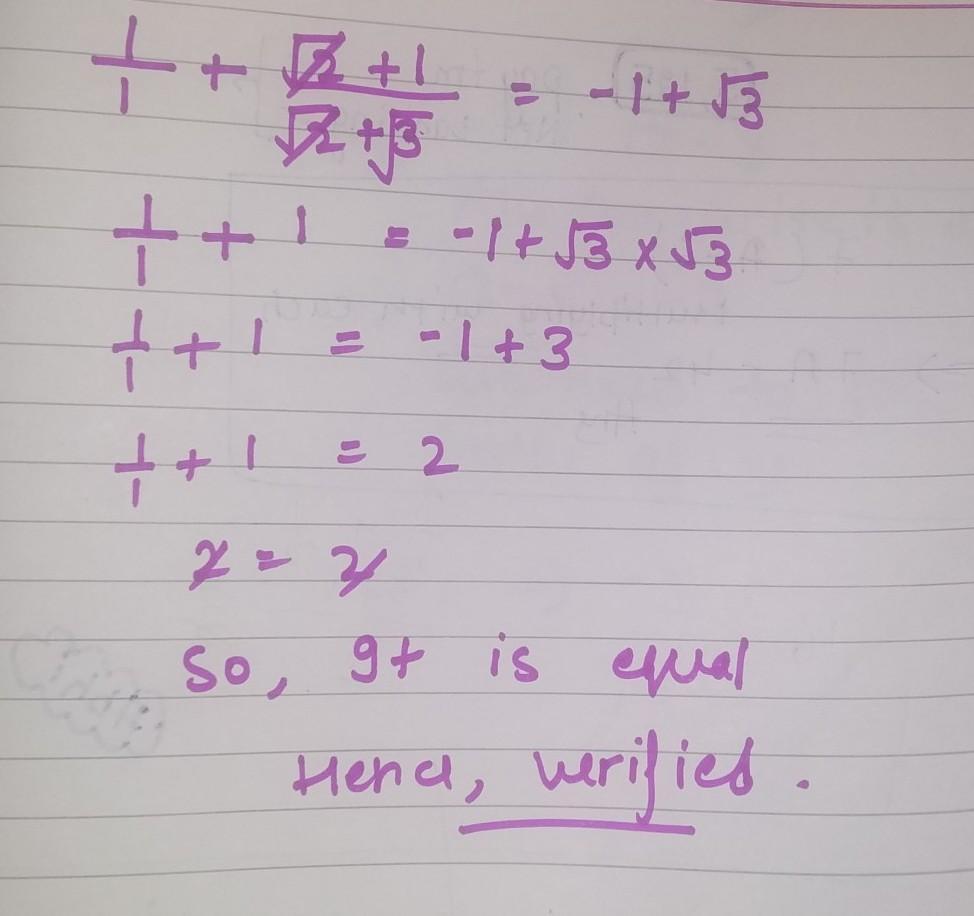 1/1 + √2 + 1 / √2 + √3 = -1 + √3
1/1 + 1 = -1 + √3 × √3
1/1 + 1 = -1 + 3
1/1 + 1 = 2
2 = 2
So, It is equal
Hence, verified.